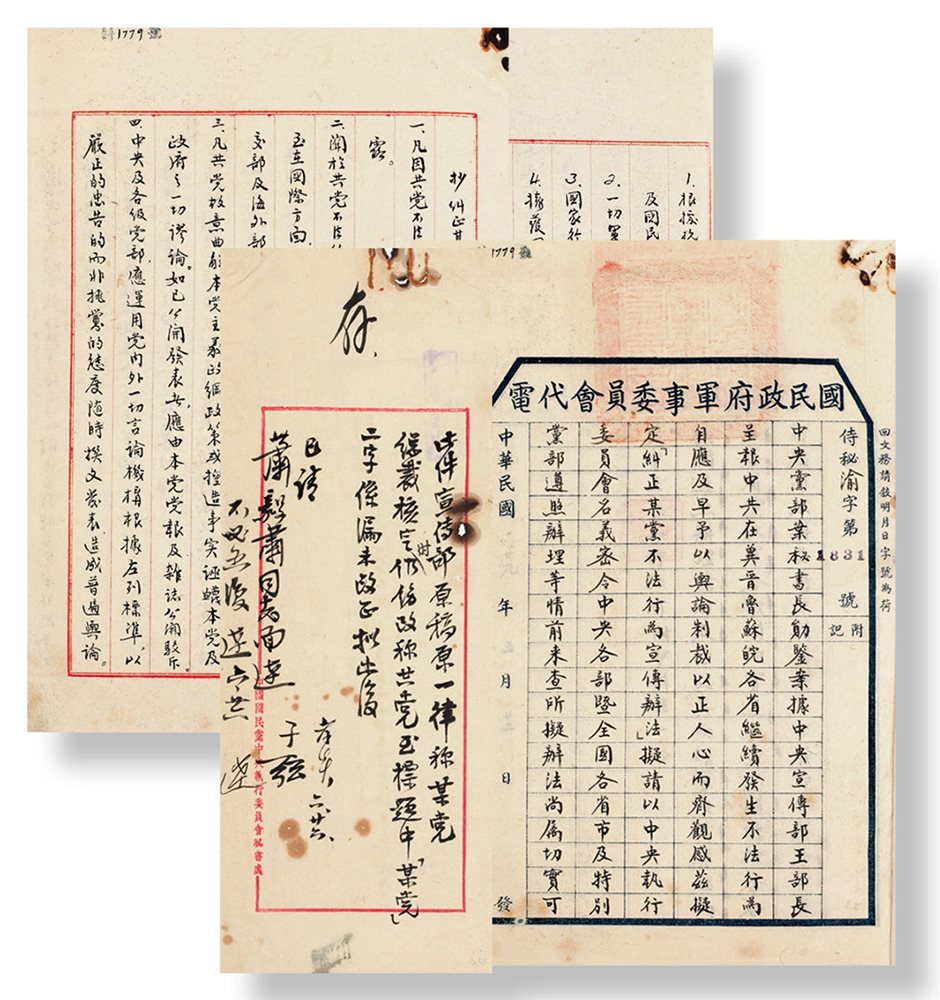 1779
抄糾正某
一、凡因共党不法
露。
二、關於共党不法
至在國際方面
交部及海外部
三、凡共党故意曲解本党主義政綱政策或捏造事实誣衊本党及
政府之一切謬論。如已公開發表者，應由本党党報及雜誌公開駁斥。
四、中央及各級党部應運用党內外一切言論機構根據左列標準，以
嚴正的忠告的而非挑釁的態度隨時撰文發表造成普遍輿論。
1.
及國民
2. 一切軍
3. 國家行
4.
1779
國民政府軍事委員會代電
回文務請敘明月日字號為荷
侍秘渝字第1831號
附記
中央黨部葉秘書長勛鑒案據中央宣傳部王部長
呈報中共在冀晉魯蘇皖各省繼續發生不法行為
自應及早予以輿論制裁以正人心而齊觀感茲擬
定「糾正某黨不法行為宣傳辦法」擬請以中央執行
委員會名義密令中央各部暨全國各省市及特別
黨部遵照辦理等情前來查所擬辦法尚屬切實可
中華民國 年 月 日 發
存.
此件宣傳部原稿原一律稱某党
總裁核定時仍飭改稱共党至標題中「某党」
二字係漏未改正
已請
蕭 同志面
中國國民黨中央執行委員會秘書處